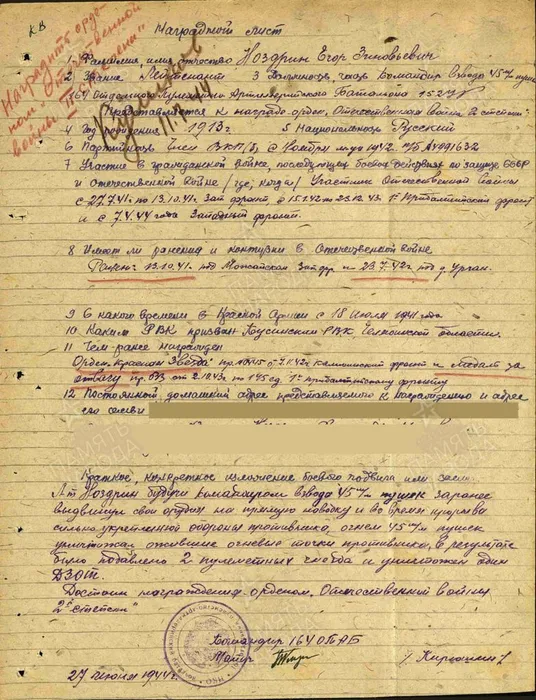 КВ
Наградить орденом "Отечественной войны II степени"
11.7.44
Наградной лист
1 Фамилия имя отчество Ноздрин Егор Зиновьевич
2 Звание Лейтенант 3 Должность, часть Командир взвода 45 м/м пушек
164 Отдельного Артиллерийского Батальона 152 УР
Представляется к награде орден „Отечественной война 2 степени"
4 Год рождения 1913г. 5 Национальность Русский
6 Партийность член ВКП/б/ с Ноября м-ца 1942. п/б
7 Участие в гражданской войне, последующих боевых действиях по защите СССР
и отечественной войне /где, когда/ Участник Отечественной войны
с 27.7.41 по 13.10.41. Зап фронт с 15.1.42 по 23.12.43 1й Прибалтийский фронт
и с 7.4.44 года Западный фронт.
8 Имеет ли ранения и контузии в Отечественной войне
Ранен: 13.10.41. под Можайском Зап фр и 23.7.42г. под д.
9 С какого времени в Красной Армии с 18 Июля 1941 года
10. Каким РВК призван РВК области.
11 Чем ранее награжден
Орден „Красная Звезда" пр. от 7.11.42г Калининский фронт и медаль за
отвагу пр. от 2.10.43г по 145 сд. 1го Прибалтийского фронта
12 Постоянный домашний адрес представляемого к награждению и адрес
его семьи
Краткое, конкретное изложение боевого подвига или заслуг
Л-т Ноздрин будучи командиром взвода 45 м/м пушек заранее
выдвинул свои орудия на прямую наводку и во время прорыва
сильно укрепленной обороны противника огнем 45 м/м пушек
уничтожал ожившие огневые точки противника, в результате
было подавлено 2 пулеметных гнезда и уничтожен один
ДЗОТ.
Достоин награждения орденом „Отечественной войны
2й степени"
Командир 164 ОПАБ
Майор
27 июня 1944 г.
ПАМЯТЬ НАРОДА